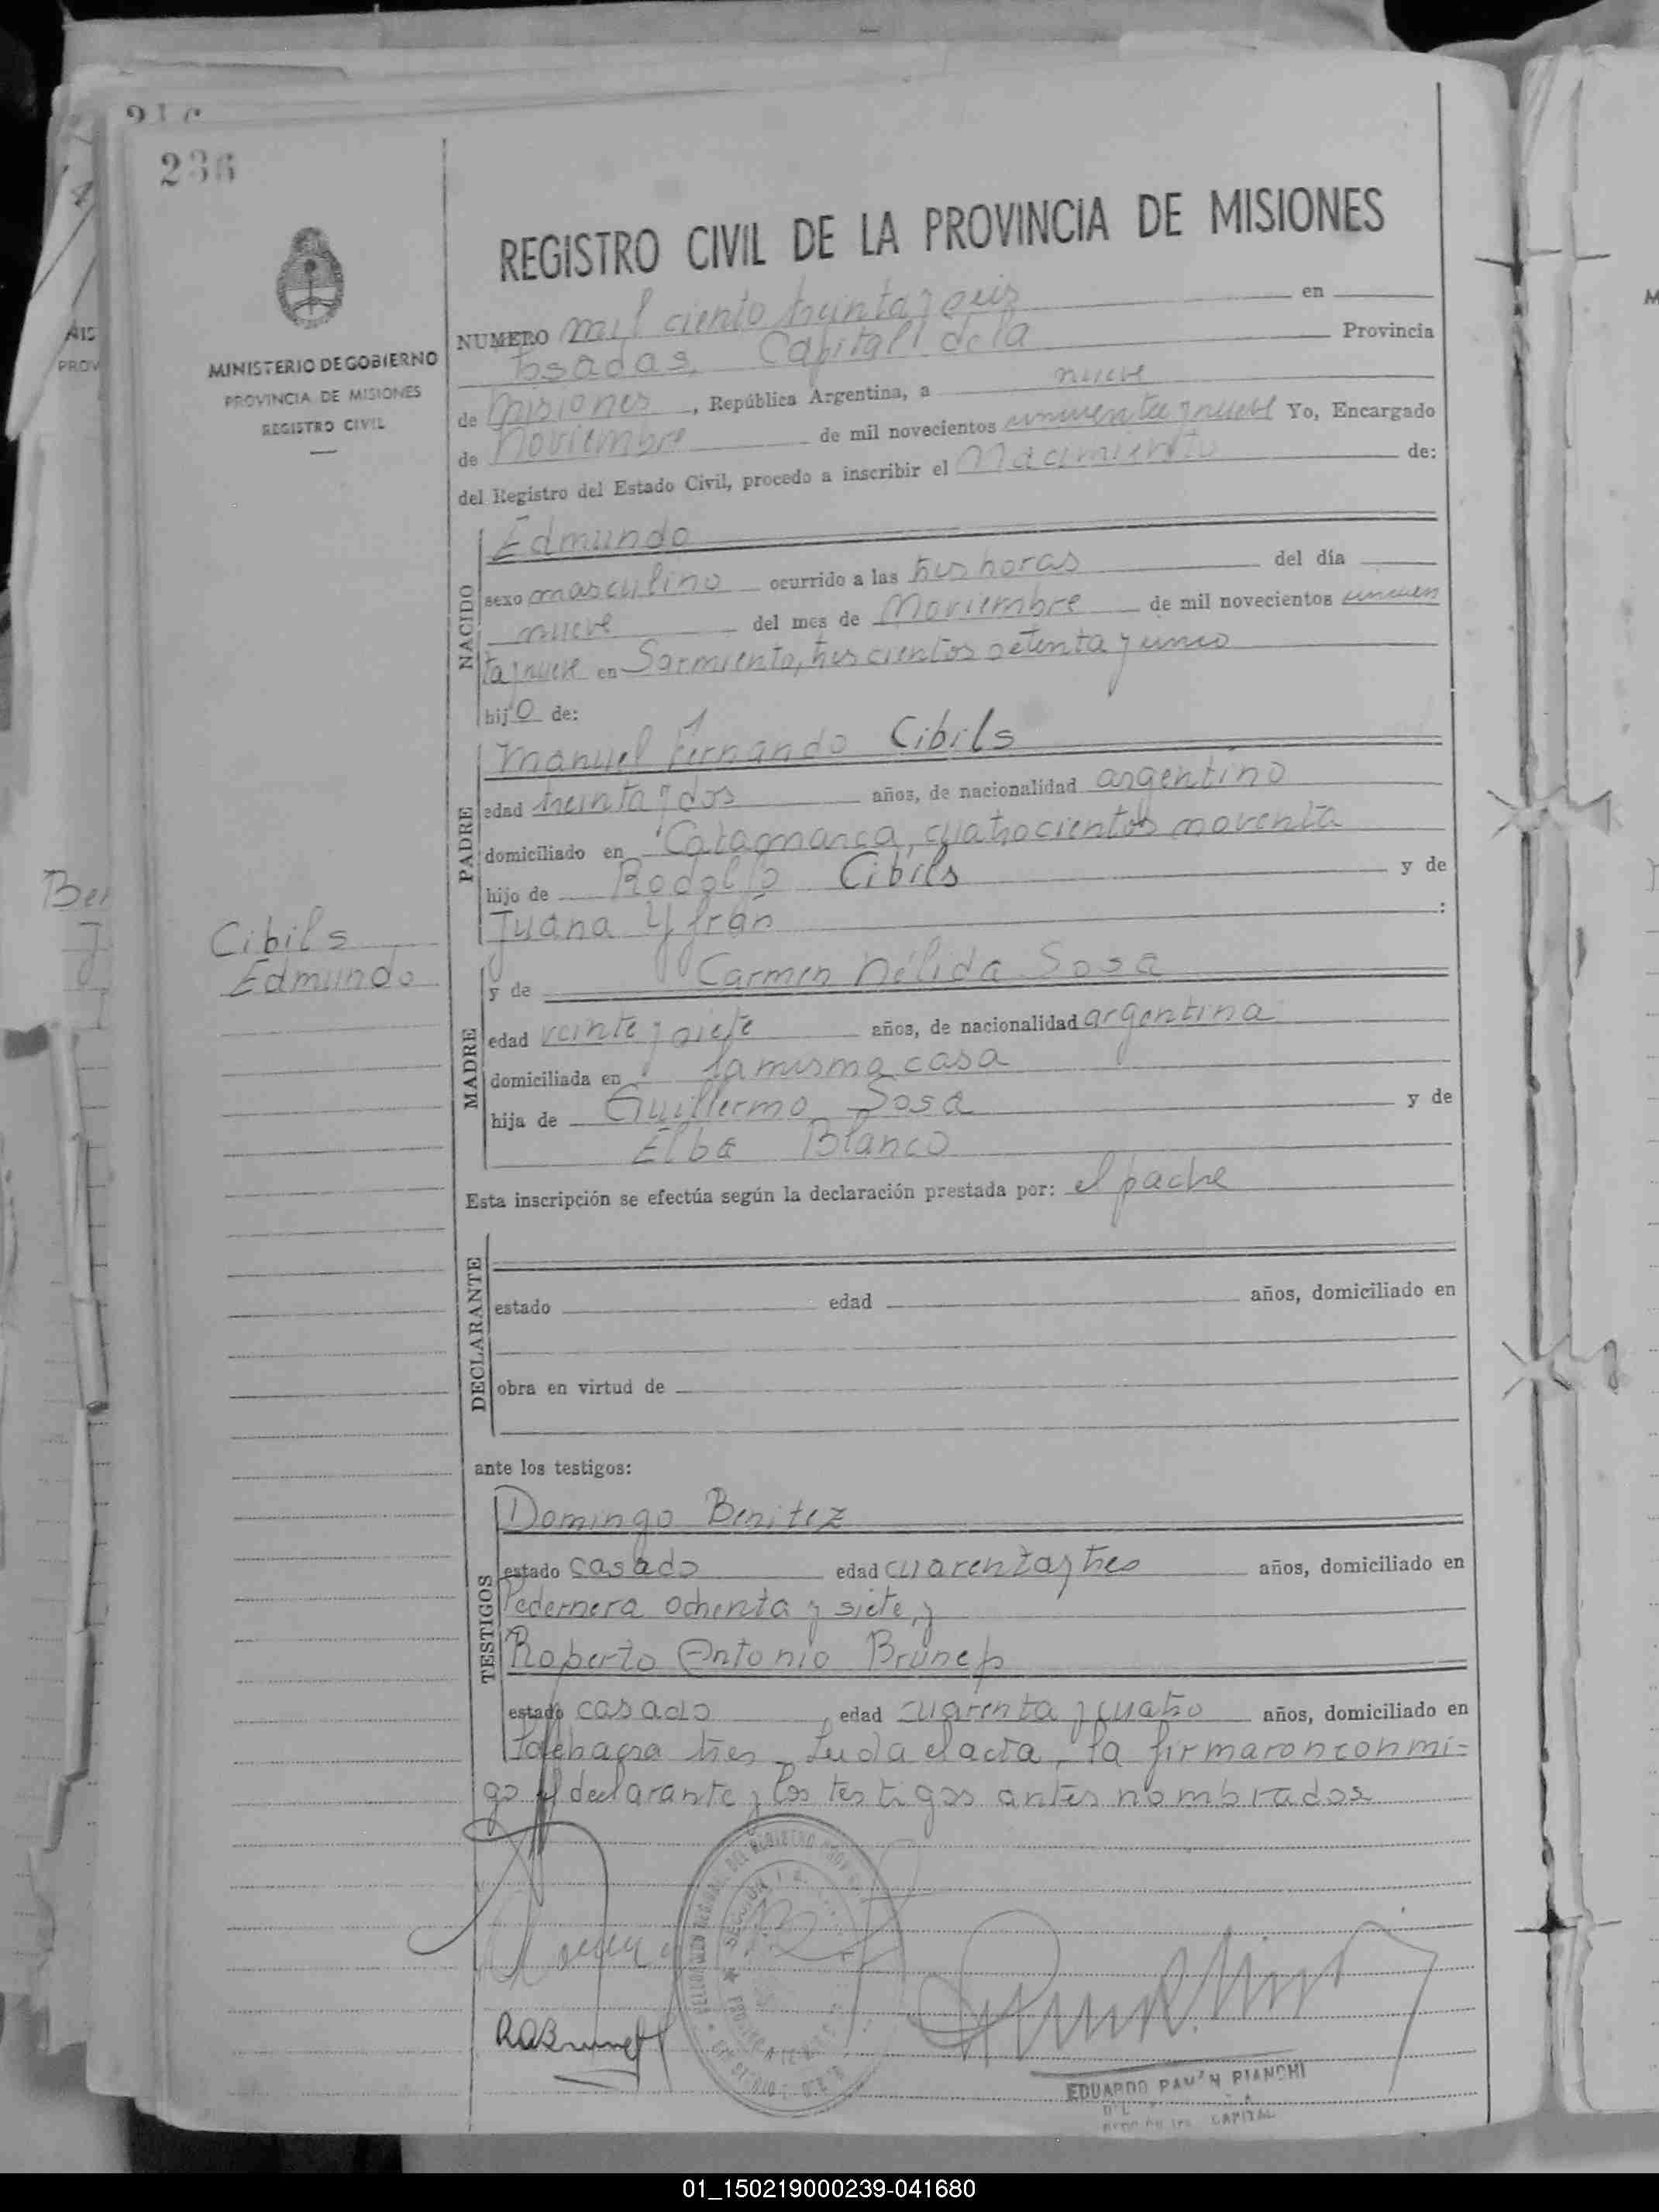 236
MINISTERIO DE GOBIERNO
PROVINCIA DE MISIONES
REGISTRO CIVIL
REGISTRO CIVIL DE LA PROVINCIA DE MISIONES
NUMERO mil ciento treinta y seis en
Posadas, Capital de la Provincia
de Misiones, República Argentina, a nueve
de Noviembre de mil novecientos cincuenta y nueve Yo, Encargado
del Registro del Estado Civil, procedo a inscribir el Nacimiento de:
NACIDO
Edmundo
sexo masculino ocurrido a las tres horas del día
nueve del mes de Noviembre de mil novecientos cincuen
ta y nueve en Sarmiento, tres cientos setenta y cinco
hijo de:
PADRE
Manuel Fernando Cibils
edad treinta y dos años, de nacionalidad argentino
domiciliado en Catamarca, cuatrocientos noventa
hijo de Rodolfo Cibils y de
Juana Yfrán :
Cibils
Edmundo
MADRE
y de Carmen Nélida Sosa
edad veinte y siete años, de nacionalidad argentina
domiciliada en la misma casa
hija de Guillermo Sosa y de
Elba Blanco
Esta inscripción se efectúa según la declaración prestada por: el padre
DECLARANTE
estado edad años, domiciliado en
obra en virtud de
ante los testigos:
TESTIGOS
Domingo Benitez
estado casado edad cuarenta y tres años, domiciliado en
Pedernera ochenta y siete, y
Roberto Antonio Brunel
estado casado edad cuarenta y cuatro años, domiciliado en
tres - Leida el acta, la firmaron conmi=
go el declarante y los testigos antes nombrados
EDUARDO RAMON BIANCHI
CAPITAL
01_150219000239-041680